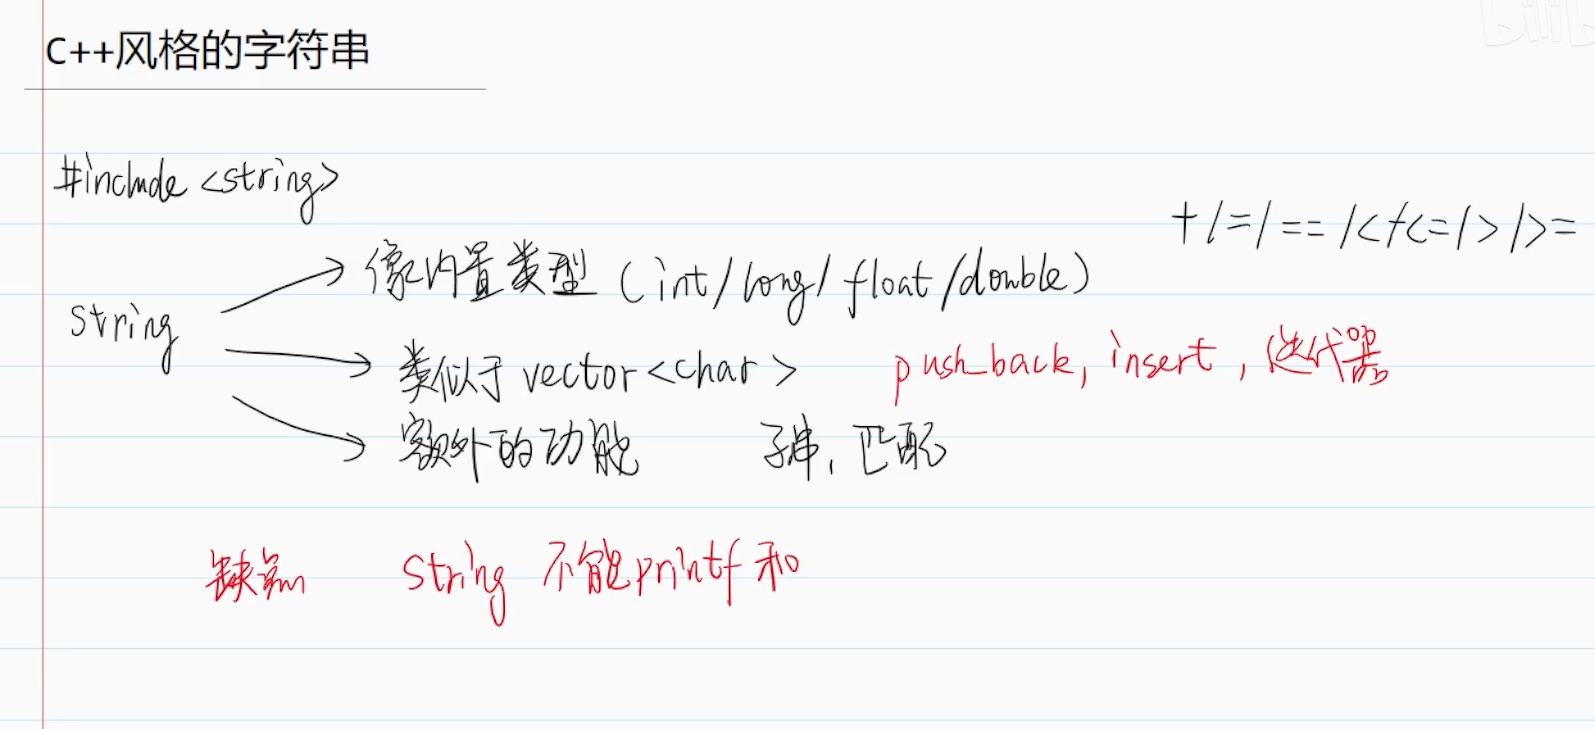 C++风格的字符串
#include <string>
+ / = / == / < / <= / > / >=
像内置类型 (int/long/float/double)
string
类似于 vector<char> push_back, insert, 迭代器
额外的功能 子串, 匹配
缺点 String 不能printf 和